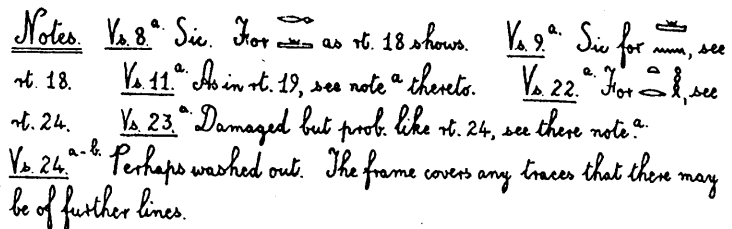 Notes. Vs. 8.ᵃ· Sic. For as rt. 18 shows. Vs. 9.ᵃ· Sic for, see
rt. 18. Vs. 11.ᵃ· As in rt. 19, see note ᵃ thereto. Vs. 22.ᵃ· For, see
rt. 24. Vs. 23.ᵃ· Damaged but prob. like rt. 24, see there note.ᵃ·
Vs. 24.ᵃ⁻ᵇ· Perhaps washed out. The frame covers any traces that there may
be of further lines.